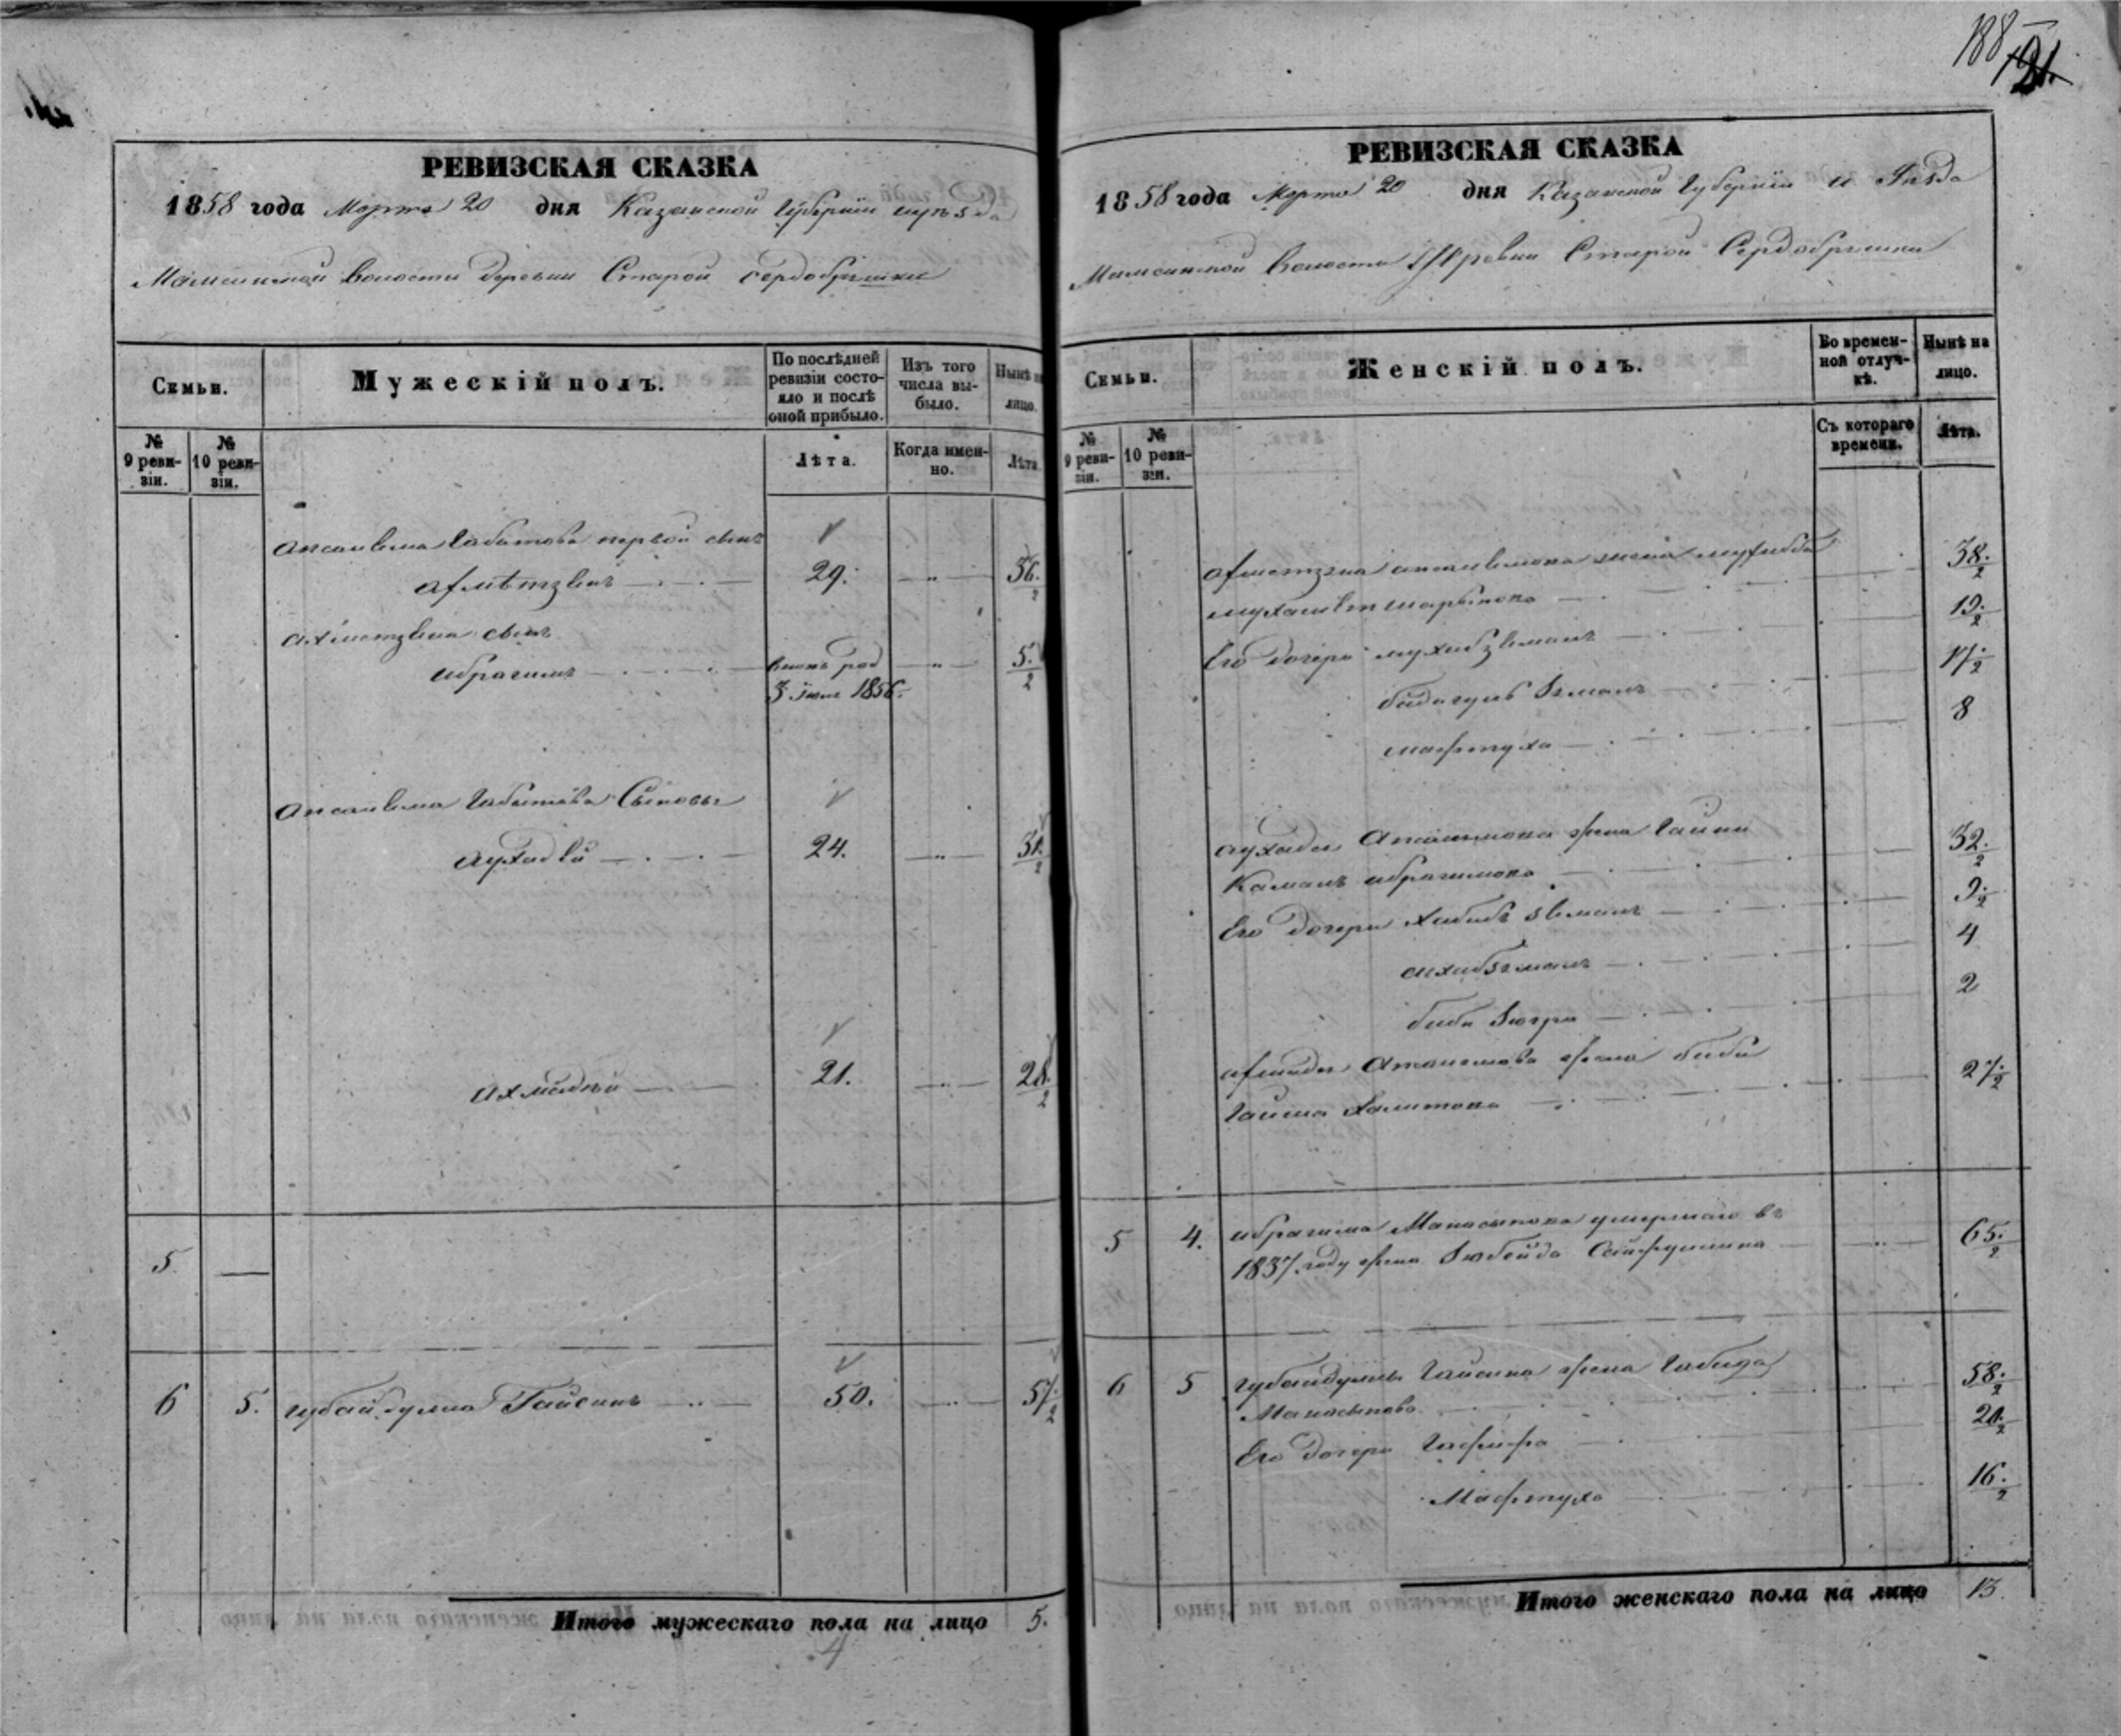 188
121.
РЕВИЗСКАЯ СКАЗКА
1858 года Марта 20 дня Казанской Губернии и уѣзда
Мамсинской волости деревни Старой Сердобряшки
Семьи.
Мужескій полъ.
По послѣдней ревизіи состояло и послѣ оной прибыло.
Изъ того числа выбыло.
Нынѣ на лицо.
№ 9 ревизіи.
№ 10 ревизіи.
Лѣта.
Когда именно.
Лѣта
Габитова первой сынъ
Ахметзянъ 29. 36. 2
Ахметзяна сынъ
Ибрагимъ род 5. 2
3 1856.
Габитова Сыновья
Аухадѣй 24. 31. 2
Ахмадѣй 21. 28. 2
5
6 5. Губайдулла Гайсинъ 50. 57. 2
Итого мужескаго пола на лицо 5.
4
РЕВИЗСКАЯ СКАЗКА
1858 года Марта 20 дня Казанской Губерніи и уѣзда
Мамсинской волости Деревни Старой Сердобряшки
Семьи.
Женскій полъ.
Во временной отлучкѣ.
Нынѣ на лицо.
№ 9 ревизіи.
№ 10 ревизіи.
Съ котораго времени.
Лѣта.
Ахметзяна жена 38. 2
Его дочери 19. 2
17. 2
Мафтуха 8
Аухадея жена Гайни
Камалъ Ибрагимова 32. 2
Его дочери Хабибъ 9. 2
4
Биби Зюгра 2
Ахмадея жена Биби
Гайша Хамитова 27. 2
5 4. Ибрагима Манасыпова умершаго въ
1837 году жена Зюбейда Сайфуллина 65. 2
6 5 Губайдуллы Гайсина жена Габида
Манасыпова 58. 2
Его дочери Гафифа 20. 2
Мафтуха 16. 2
Итого женскаго пола на лицо 13.